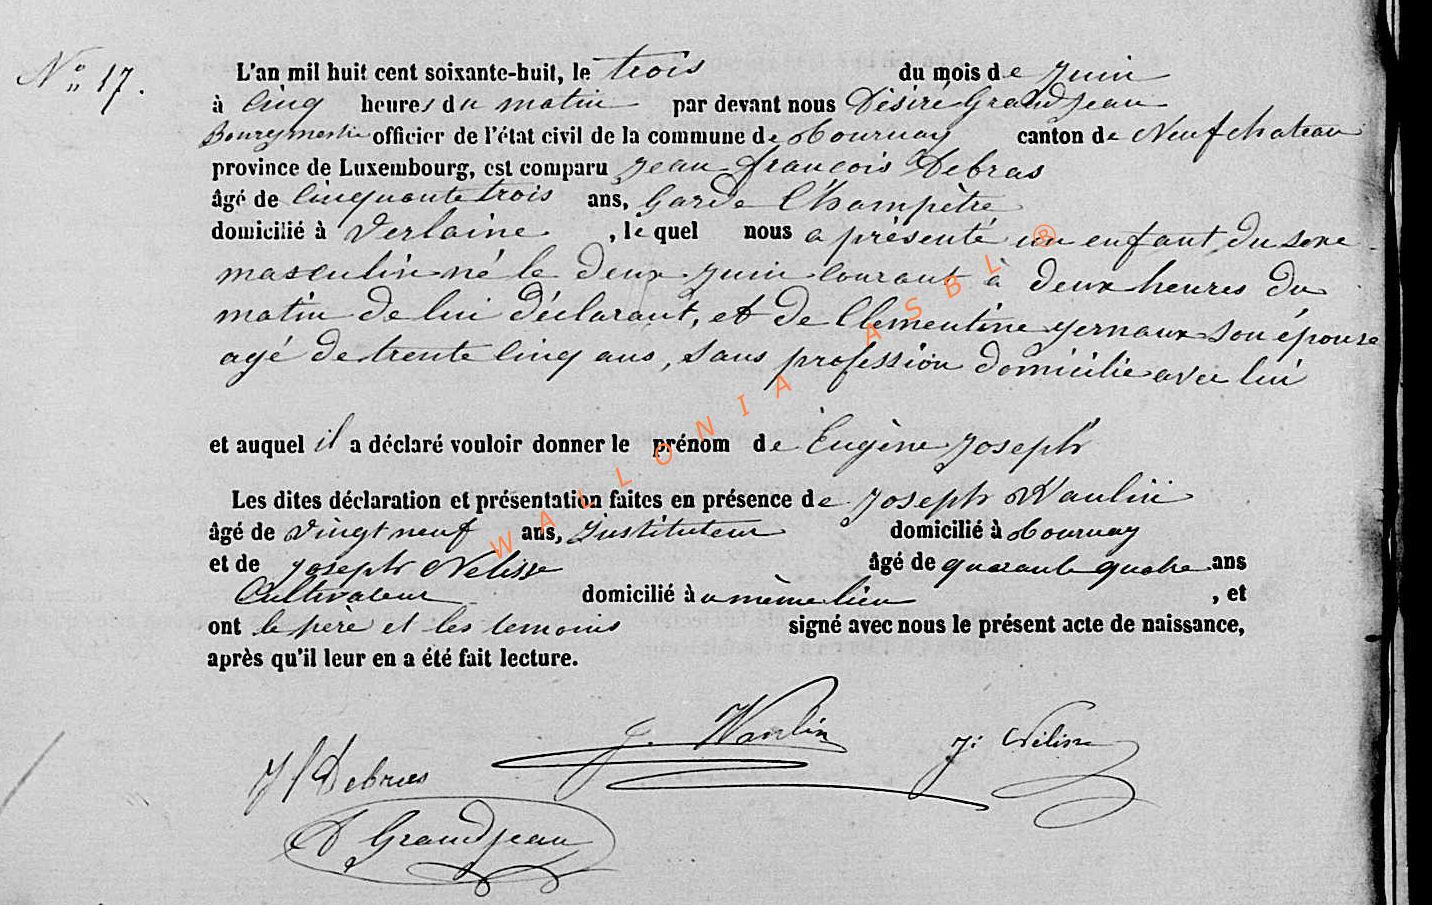 N° 17.
L'an mil huit cent soixante-huit, le trois du mois de Juin
à cinq heures du matin par devant nous Désiré Grandjean
Bourgmestre officier de l'état civil de la commune de Tournay canton de Neufchateau
province de Luxembourg, est comparu Jean François Debras
âgé de cinquante trois ans, Garde Champêtre
domicilié à Verlaine, le quel nous a présenté un enfant du sexe
masculin né le deux Juin courant à deux heures du
matin de lui déclarant, et de Clementine Gernaux son épouse
agé de trente cinq ans, sans profession domicilie avec lui
et auquel il a déclaré vouloir donner le prénom de Eugène Joseph
Les dites déclaration et présentation faites en présence de Joseph Waulin
âgé de vingt neuf ans, Instituteur domicilié à Tournay
et de Joseph Nelisse âgé de quarante quatre ans
Cultivateur domicilié à u même lieu, et
ont le père et les temoins signé avec nous le présent acte de naissance,
après qu'il leur en a été fait lecture.
J. Waulin J: Nélisse
J f Debras
D Grandjean
WALLONIA ASBL ®